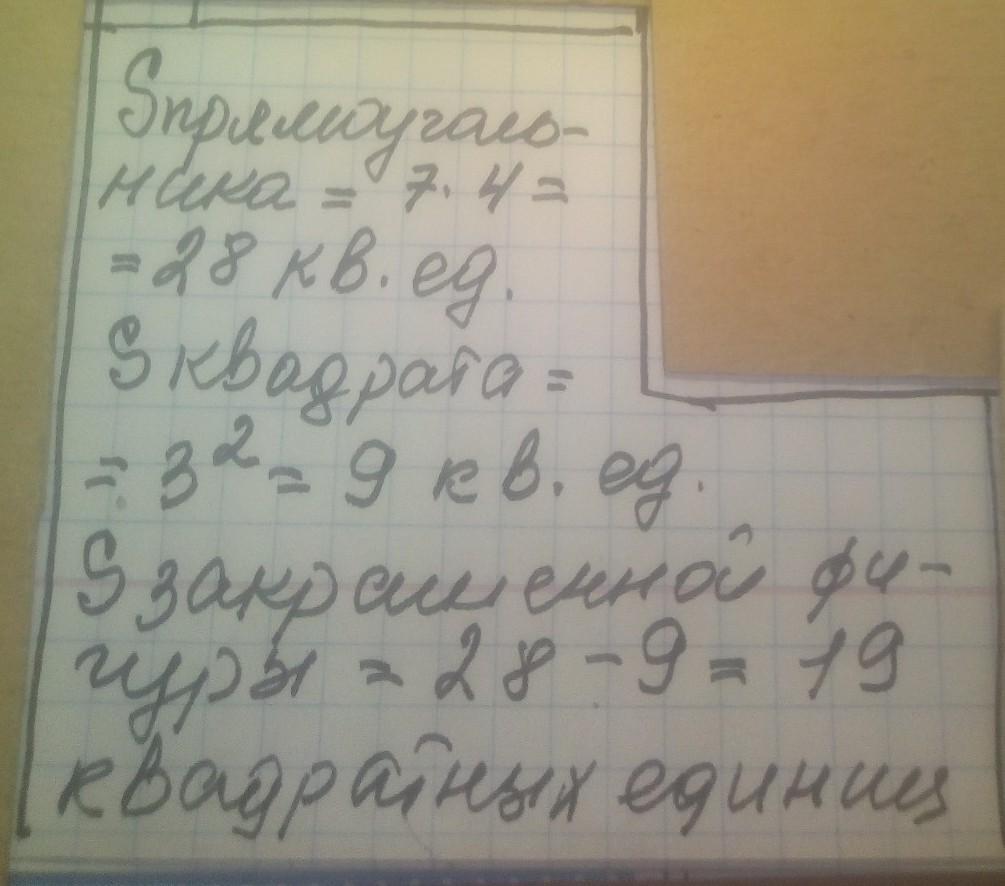 Sпрямоуголь-
ника = 7·4 =
= 28 кв. ед.
S квадрата =
= 3² = 9 кв. ед.
S закрашенной фи-
гуры = 28 - 9 = 19
квадратных единиц